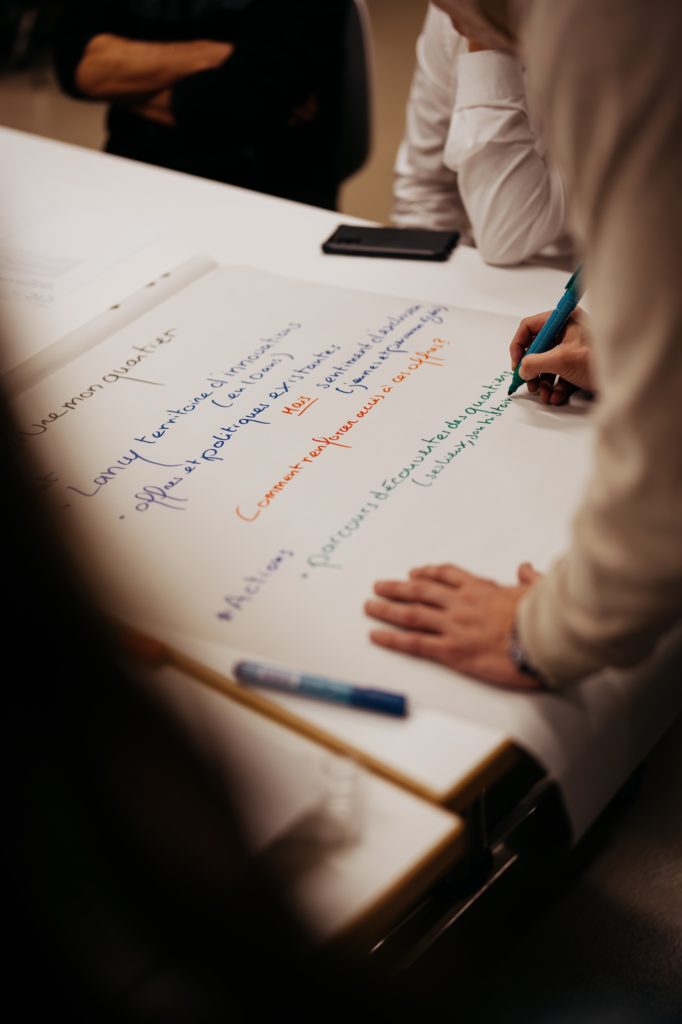 mon quartier
• Lancy territoire d'innovations
(en 10 ans)
• offres et politiques existantes
Mais sentiment d'exclusion
(jeunes et personnes âgées)
Comment renforcer accès à ces offres?
* Actions
• parcours découvertes des quartiers
(ses lieux, son histoire